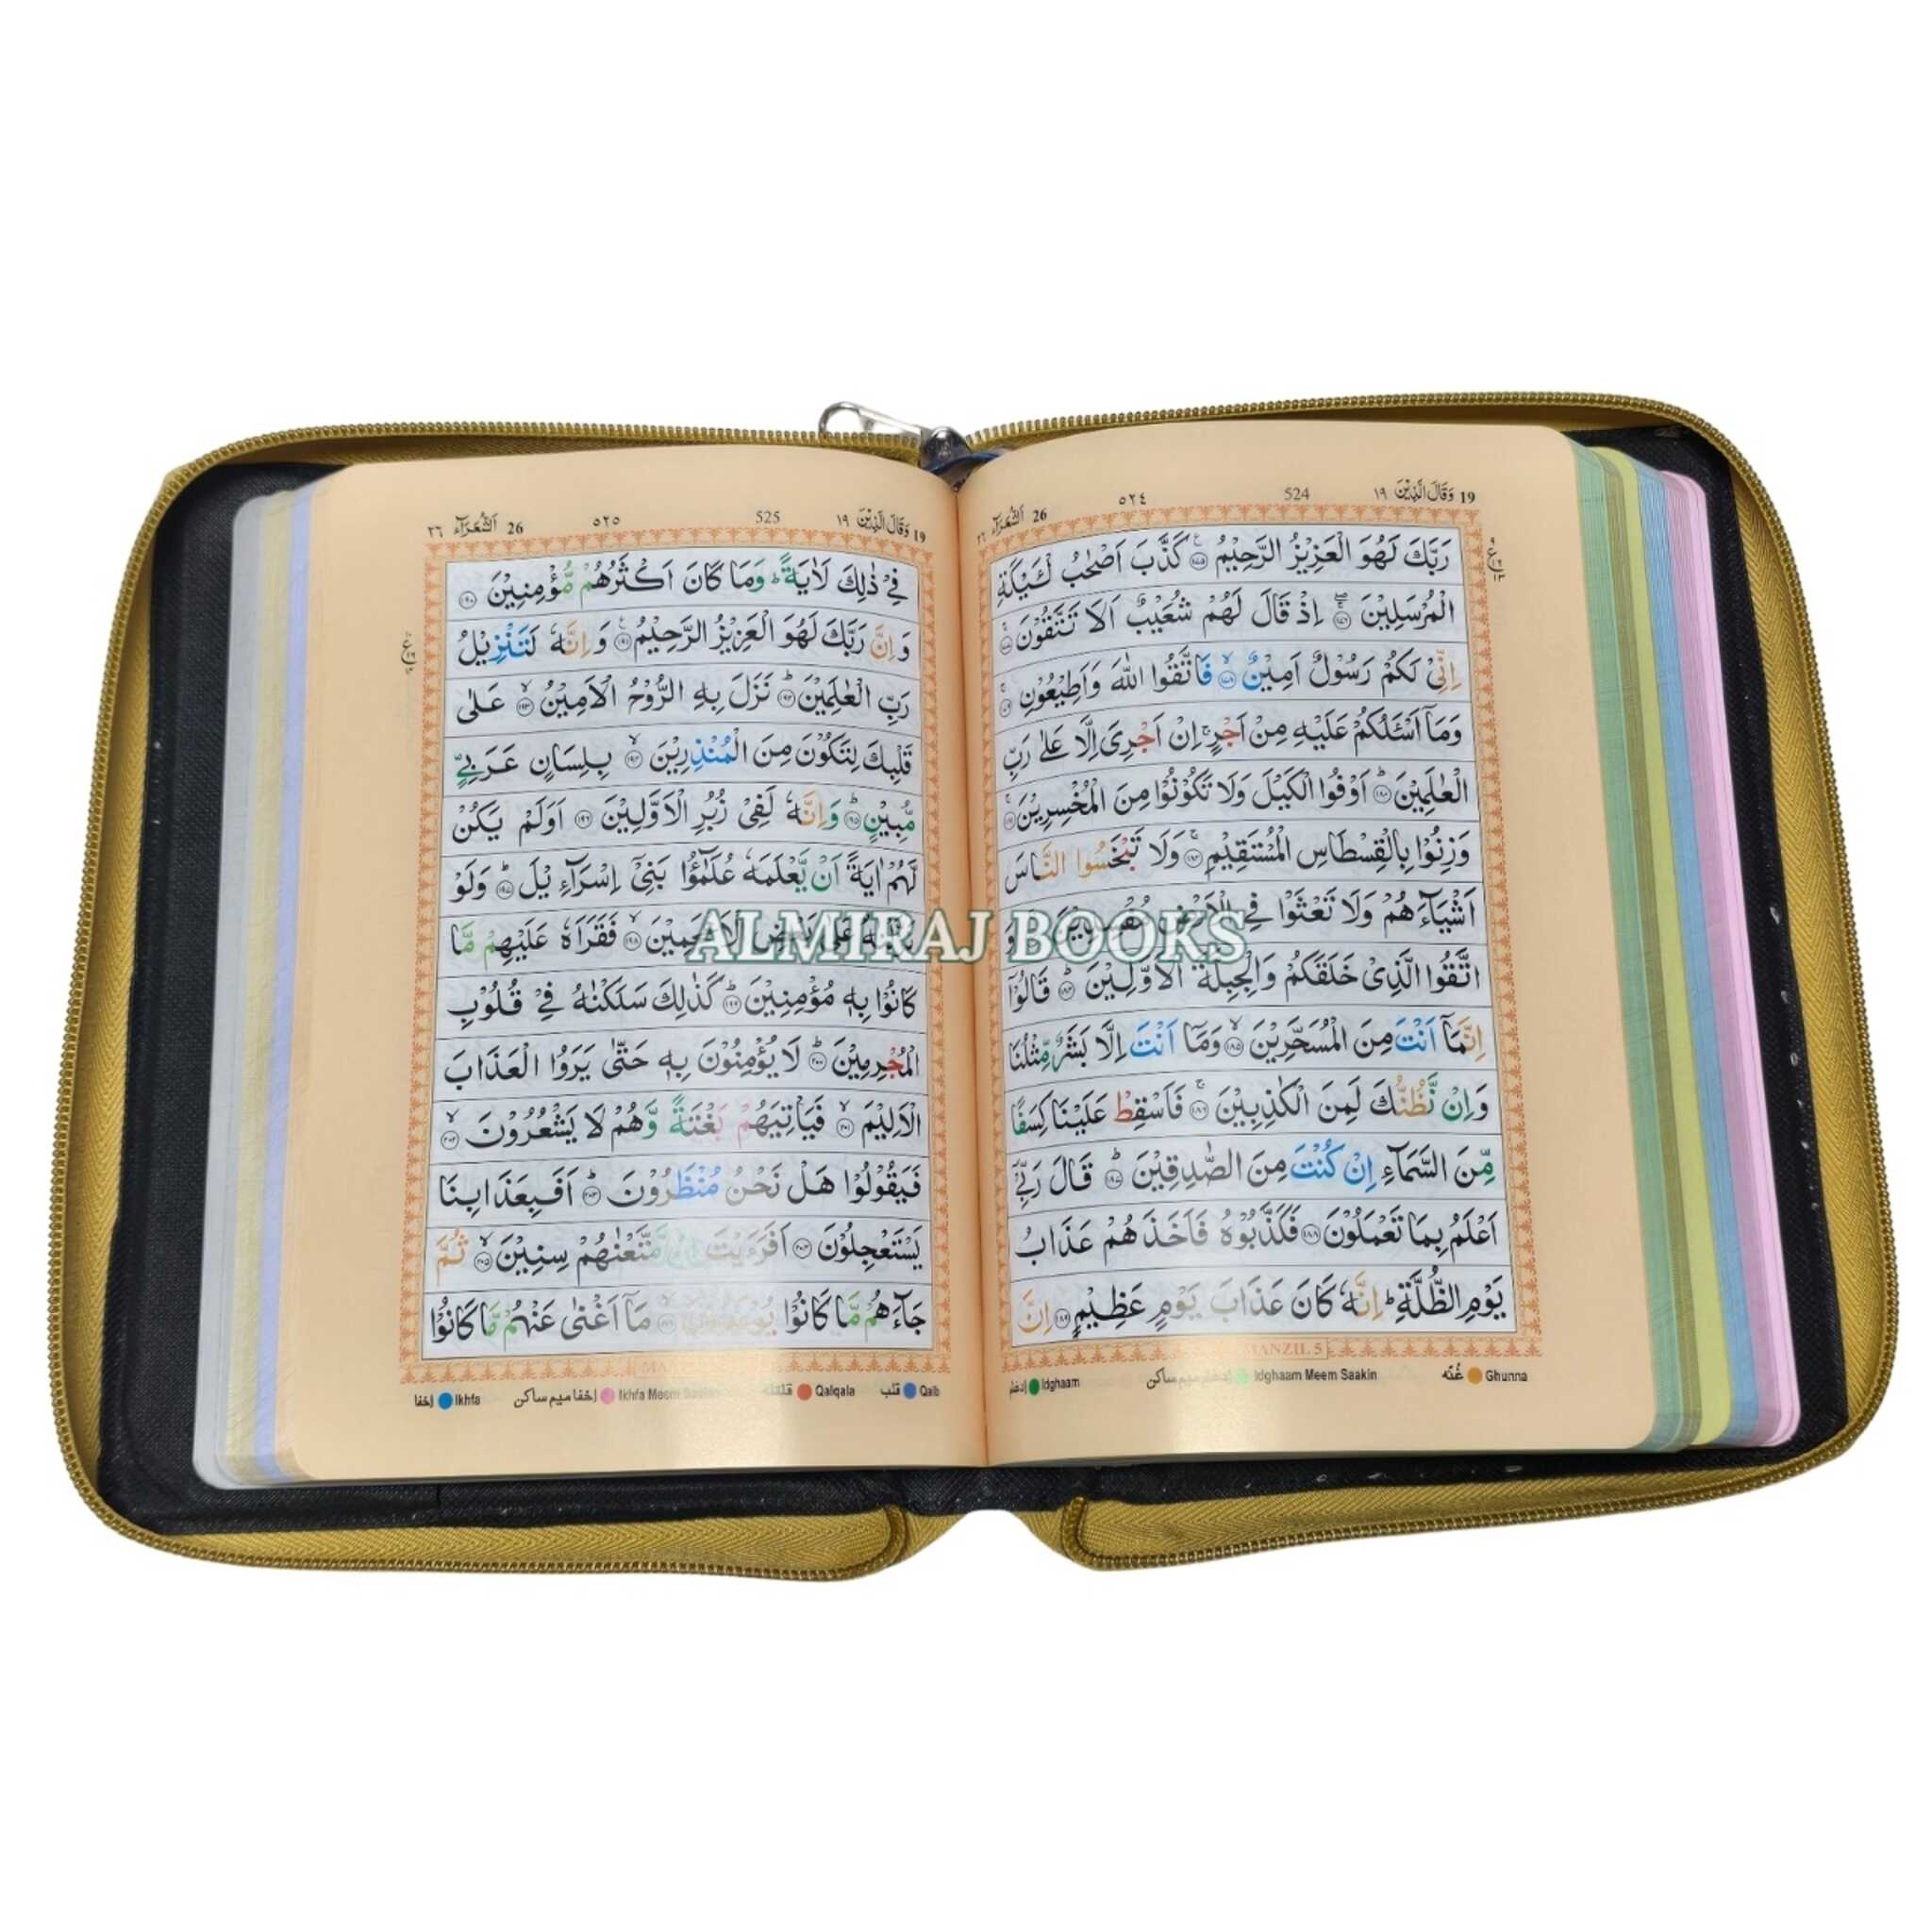 19 وَقَالَ الَّذِيْنَ ١٩ 524 ٥٢٤ 26 اَلشُّعَرَآء ٢٦
رَبَّكَ لَهُوَ الْعَزِيْزُ الرَّحِيْمُ ۝ كَذَّبَ اَصْحٰبُ لْـَٔيْكَةِ
الْمُرْسَلِيْنَ ۝ اِذْ قَالَ لَهُمْ شُعَيْبٌ اَلَا تَتَّقُوْنَ ۝
اِنِّىْ لَكُمْ رَسُوْلٌ اَمِيْنٌ ۝ فَاتَّقُوا اللّٰهَ وَاَطِيْعُوْنِ ۝
وَمَاۤ اَسْـَٔلُكُمْ عَلَيْهِ مِنْ اَجْرٍ ۚ اِنْ اَجْرِىَ اِلَّا عَلٰى رَبِّ
الْعٰلَمِيْنَ ۝ اَوْفُوا الْكَيْلَ وَلَا تَكُوْنُوْا مِنَ الْمُخْسِرِيْنَ ۝
وَزِنُوْا بِالْقِسْطَاسِ الْمُسْتَقِيْمِ ۝ وَلَا تَبْخَسُوا النَّاسَ
اَشْيَآءَهُمْ وَلَا تَعْثَوْا فِى الْاَرْضِ مُفْسِدِيْنَ ۝ وَ
اتَّقُوا الَّذِىْ خَلَقَكُمْ وَالْجِبِلَّةَ الْاَوَّلِيْنَ ۝ قَالُوْۤا
اِنَّمَاۤ اَنْتَ مِنَ الْمُسَحَّرِيْنَ ۝ وَمَاۤ اَنْتَ اِلَّا بَشَرٌ مِّثْلُنَا
وَاِنْ نَّظُنُّكَ لَمِنَ الْكٰذِبِيْنَ ۝ فَاَسْقِطْ عَلَيْنَا كِسَفًا
مِّنَ السَّمَآءِ اِنْ كُنْتَ مِنَ الصّٰدِقِيْنَ ۝ قَالَ رَبِّىْۤ
اَعْلَمُ بِمَا تَعْمَلُوْنَ ۝ فَكَذَّبُوْهُ فَاَخَذَهُمْ عَذَابُ
يَوْمِ الظُّلَّةِ ؕ اِنَّهٗ كَانَ عَذَابَ يَوْمٍ عَظِيْمٍ ۝ اِنَّ
MANZIL 5
Ghunna غُنّه Idghaam Meem Saakin ادغام میم ساکن Idghaam ادغام
19 وَقَالَ الَّذِيْنَ ١٩ 525 ٥٢٥ 26 اَلشُّعَرَآء ٢٦
فِىْ ذٰلِكَ لَاٰيَةً ؕ وَمَا كَانَ اَكْثَرُهُمْ مُّؤْمِنِيْنَ ۝
وَاِنَّ رَبَّكَ لَهُوَ الْعَزِيْزُ الرَّحِيْمُ ۝ وَاِنَّهٗ لَتَنْزِيْلُ
رَبِّ الْعٰلَمِيْنَ ۝ نَزَلَ بِهِ الرُّوْحُ الْاَمِيْنُ ۝ عَلٰى
قَلْبِكَ لِتَكُوْنَ مِنَ الْمُنْذِرِيْنَ ۝ بِلِسَانٍ عَرَبِىٍّ
مُّبِيْنٍ ۝ وَاِنَّهٗ لَفِىْ زُبُرِ الْاَوَّلِيْنَ ۝ اَوَلَمْ يَكُنْ
لَّهُمْ اٰيَةً اَنْ يَّعْلَمَهٗ عُلَمٰٓؤُا بَنِىْۤ اِسْرَآءِيْلَ ۝ وَلَوْ
عَلٰى بَعْضِ الْاَعْجَمِيْنَ ۝ فَقَرَاَهٗ عَلَيْهِمْ مَّا
كَانُوْا بِهٖ مُؤْمِنِيْنَ ۝ كَذٰلِكَ سَلَكْنٰهُ فِىْ قُلُوْبِ
الْمُجْرِمِيْنَ ۝ لَا يُؤْمِنُوْنَ بِهٖ حَتّٰى يَرَوُا الْعَذَابَ
الْاَلِيْمَ ۝ فَيَاْتِيَهُمْ بَغْتَةً وَّهُمْ لَا يَشْعُرُوْنَ ۝
فَيَقُوْلُوْا هَلْ نَحْنُ مُنْظَرُوْنَ ۝ اَفَبِعَذَابِنَا
يَسْتَعْجِلُوْنَ ۝ اَفَرَءَيْتَ اِنْ مَّتَّعْنٰهُمْ سِنِيْنَ ۝ ثُمَّ
جَآءَهُمْ مَّا كَانُوْا يُوْعَدُوْنَ ۝ مَاۤ اَغْنٰى عَنْهُمْ مَّا كَانُوْا
Qalb قلب Qalqala قلقله Ikhfa Meem Saakin اخفا میم ساکن Ikhfa اخفا
ALMIRAJ BOOKS